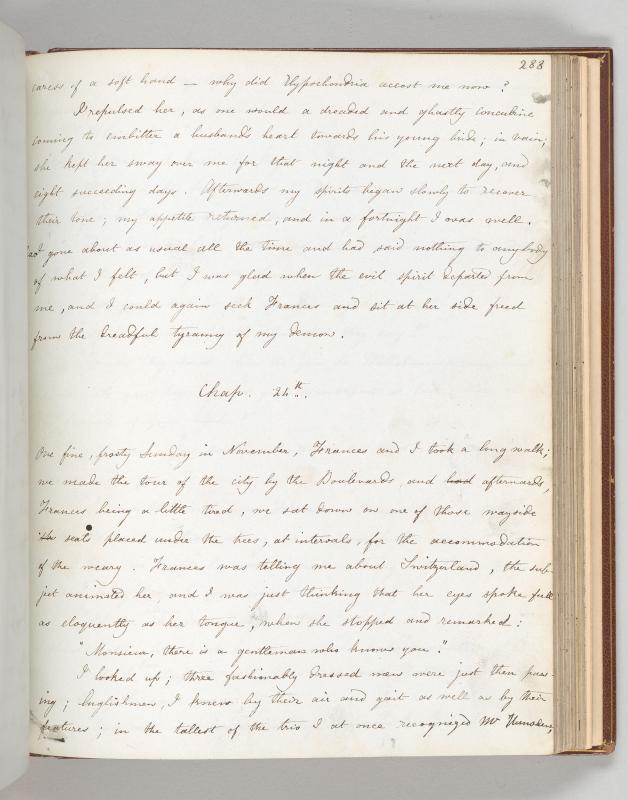 288
caress of a soft hand — why did Hypochondria accost me now?
I repulsed her, as one would a dreaded and ghastly concubine
coming to embitter a husband's heart towards his young bride; in vain;
she kept her sway over me for that night and the next day, and
eight succeeding days. Afterwards my spirits began slowly to recover
their tone; my appetite returned, and in a fortnight I was well.
I gone about as usual all the time and had said nothing to anybody
of what I felt, but I was glad when the evil spirit departed from
me, and I could again seek Frances and sit at her side freed
from the dreadful tyranny of my demon.
Chap. 24th.
One fine, frosty Sunday in November, Frances and I took a long walk;
we made the tour of the city by the Boulevards, and had afterwards,
Frances being a little tired, we sat down on one of those wayside
seats placed under the trees, at intervals, for the accommodation
of the weary. Frances was telling me about Switzerland, the sub-
ject animated her, and I was just thinking that her eyes spoke full
as eloquently as her tongue, when she stopped and remarked:
"Monsieur, there is a gentleman who knows you."
I looked up; three fashionably dressed men were just then pass-
ing; Englishmen, I knew by their air and gait as well as by their
features; in the tallest of the trio I at once recognized Mr Hunsden;